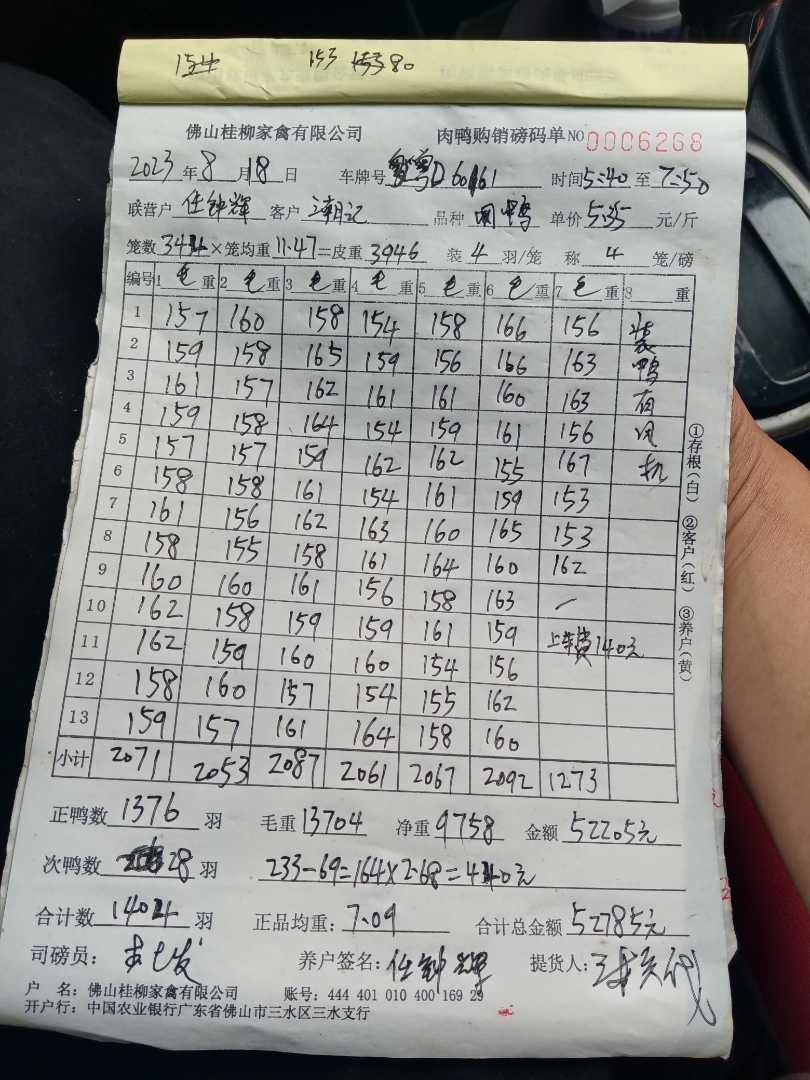 153 80
佛山桂柳家禽有限公司 肉鸭购销磅码单 NO 0006268
2023 年 8 月 18 日 车牌号 粤D 60161 时间 5:40 至 7:50
联营户 任钟辉 客户 潮记 品种 肉鸭 单价 5.35 元/斤
笼数 344 × 笼均重 11.47 = 皮重 3946 装 4 羽/笼 称 4 笼/磅
编号 1 毛重 2 毛重 3 毛重 4 毛重 5 毛重 6 毛重 7 毛重 8 重
1 157 160 158 154 158 166 156 装
2 159 158 165 159 156 166 163 鸭
3 161 157 162 161 161 160 163 有
4 159 158 164 154 159 161 156 风
5 157 157 159 162 162 155 167 机
6 158 158 161 154 161 159 153
7 161 156 162 163 160 165 153
8 158 155 158 161 164 160 162
9 160 160 161 156 158 163 —
10 162 158 159 159 161 159 上车费140元
11 162 159 160 160 154 156
12 158 160 157 154 155 162
13 159 157 161 164 158 160
小计 2071 2053 2087 2061 2067 2092 1273
①存根(白) ②客户(红) ③养户(黄)
正鸭数 1376 羽 毛重 13704 净重 9758 金额 52205元
次鸭数 28 羽 233-69=164×2.68=440元
合计数 1404 羽 正品均重: 7.09 合计总金额 52785元
司磅员: 养户签名: 任钟辉 提货人:
户 名: 佛山桂柳家禽有限公司 账号: 444 401 010 400 169 29
开户行: 中国农业银行广东省佛山市三水区三水支行